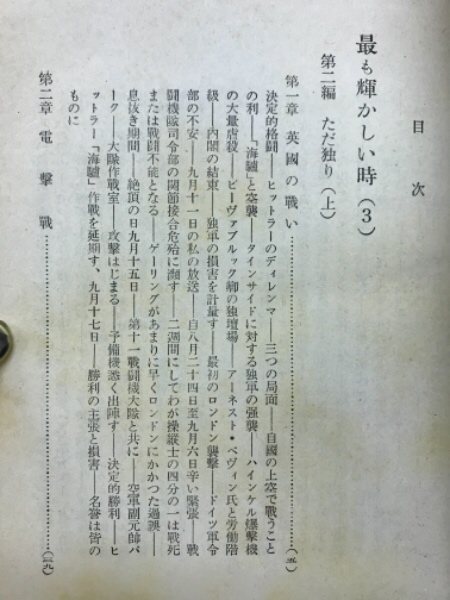 目次
最も輝かしい時（3）
第二編 ただ独り（上）
第一章 英國の戰い……（五）
決定的格闘——ヒットラーのディレンマ——三つの局面——自國の上空で戰うこと
の利——「海驢」と空襲——タインサイドに対する独軍の强襲——ハインケル爆撃機
の大量虐殺——ビーヴァブルック卿の独壇場——アーネスト・ベヴィン氏と労働階
級——內閣の結束——独軍の損害を計量す——最初のロンドン襲撃——ドイツ軍令
部の不安——九月十一日の私の放送——自八月二十四日至九月六日辛い緊張——戰
闘機隊司令部の関節接合危殆に瀕す——二週間にしてわが操縱士の四分の一は戰死
または戰闘不能となる——ゲーリングがあまりに早くロンドンにかかつた過誤——
息抜き期間——絶頂の日九月十五日——第十一戰闘機大隊と共に——空軍副元帥パ
ーク——大隊作戰室——攻撃はじまる——予備機悉く出陣す——決定的勝利——ヒ
ットラー「海驢」作戰を延期す、九月十七日——勝利の主張と損害——名誉は皆の
ものに
第二章 電撃戰……（三九）